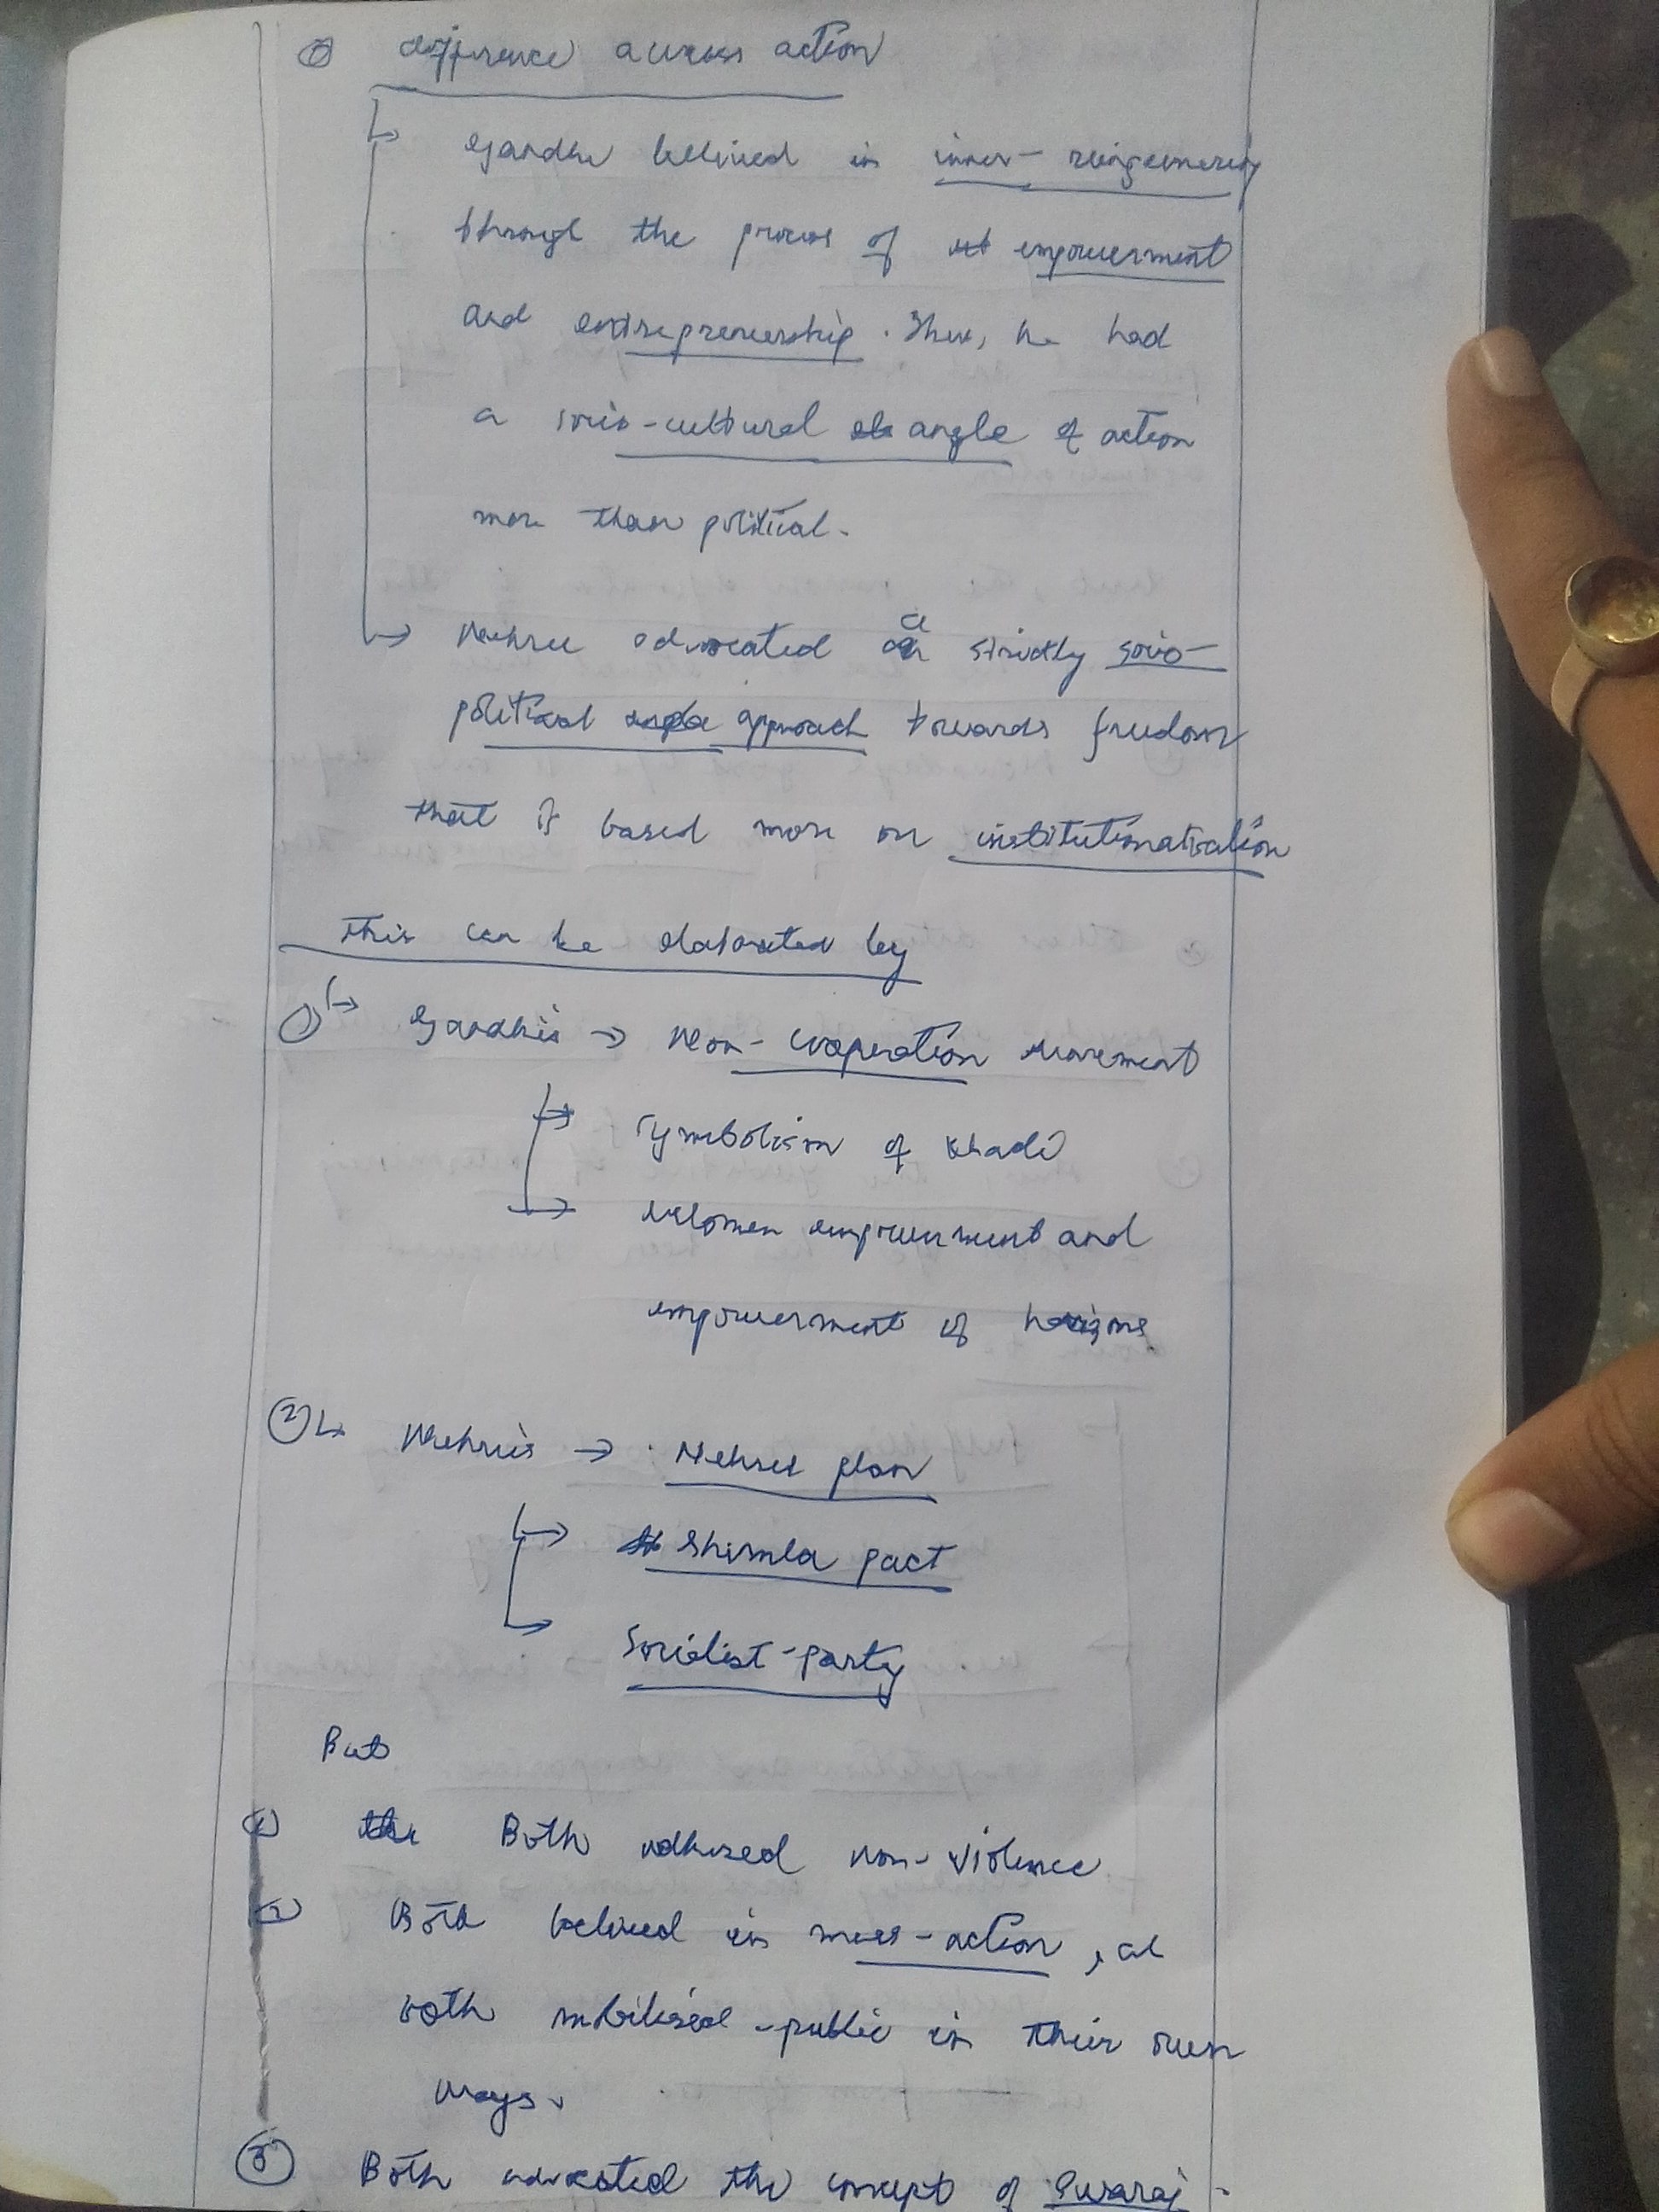 difference across action
↳ Gandhi believed in inner-reingeenering
through the process of empowerment
and entrepreneurship. Thus, he had
a socio-cultural angle of action
more than political.
↳ Nehru advocated a strictly socio-
political approach towards freedom
that is based more on institutionalisation
This can be elaborated by
① ↳ Gandhi's → Non-Cooperation movement
→ Symbolism of Khadi
→ Women empowerment and
empowerment of
② ↳ Nehru's → Nehru plan
→ Shimla pact
→ Socialist-party
But
① Both adhered non-violence
② Both believed in mass-action, as
both mobilised public in their own
ways.
③ Both advocated the concept of Swaraj.